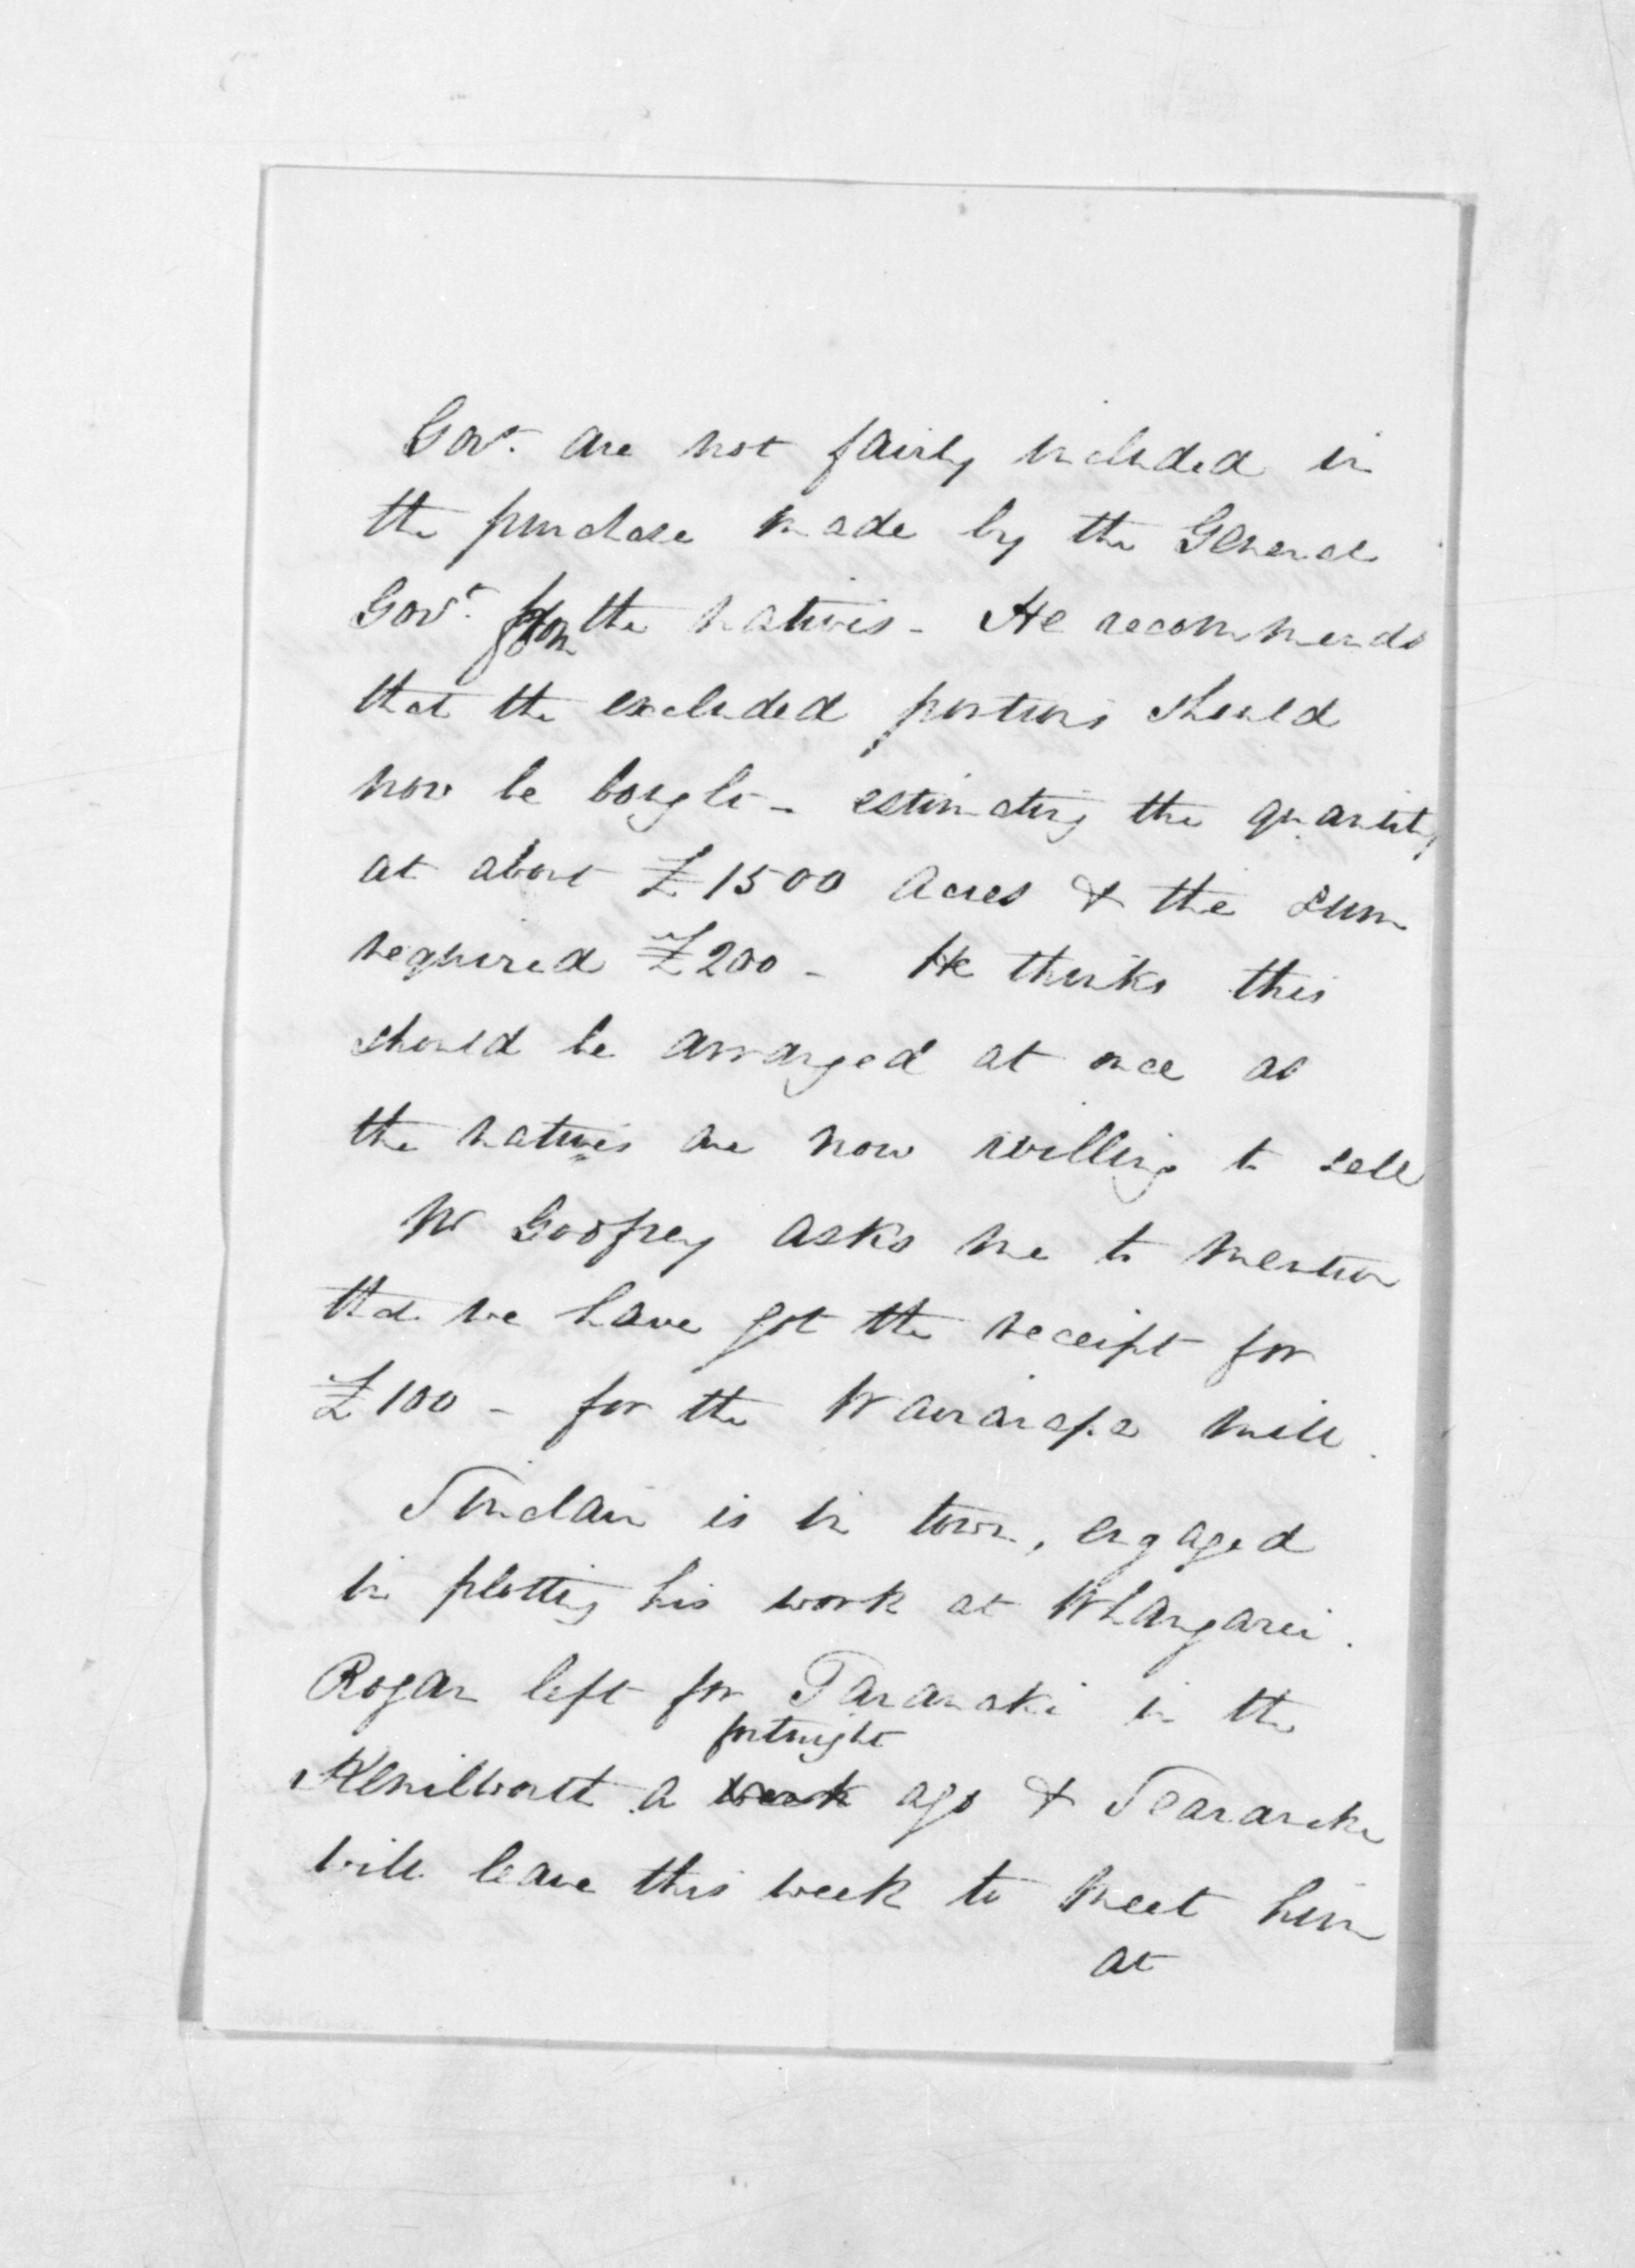 Govt. are not fairly included in
the purchase made by the General
Govt. from the natives - He recommends
that the excluded portions should
now be bought - estimating the quantity
at about £1500 acres & the sum
required £200 - He thinks this
should be arranged at once as
the natives are now willing to sell
Mr Godfrey asks me to mention
that we have got the receipt for
£100 - for the Wairarapa mill.
Sinclair is in town, engaged
in plotting his work at Whangarei.
Rogan left for Taranaki in the
fortnight
Kenilworth a week ago &
will leave this week to meet him
at